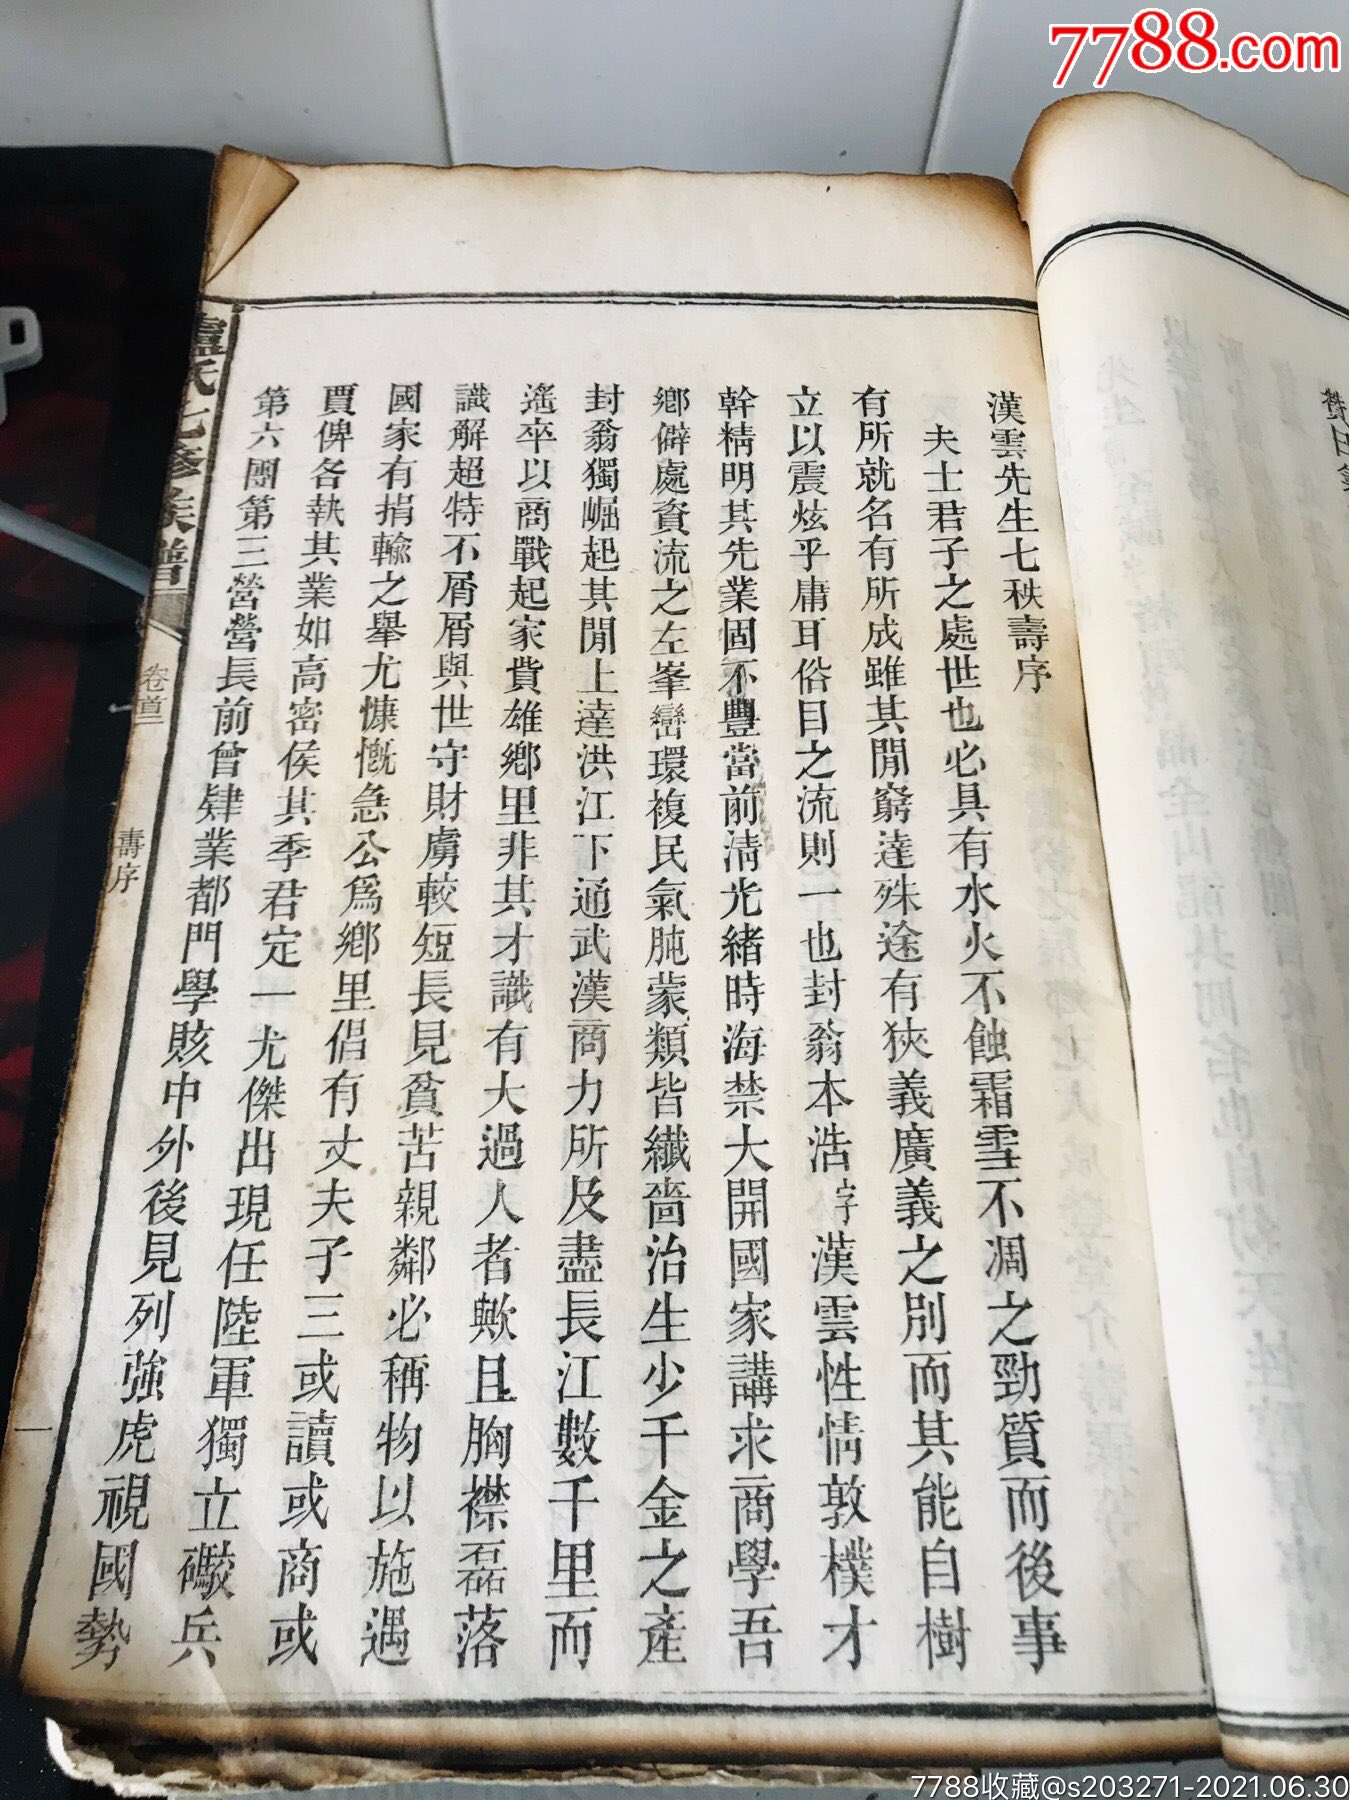 7788.com
漢雲先生七秩壽序
夫士君子之處世也必具有水火不蝕霜雪不凋之勁質而後事
有所就名有所成雖其閒窮達殊途有狹義廣義之別而其能自樹
立以震炫乎庸耳俗目之流則一也封翁本浩字漢雲性情敦樸才
幹精明其先業固不豐當前清光緒時海禁大開國家講求商學吾
鄉僻處資流之左峯巒環複民氣肫蒙類皆纖嗇治生少千金之產
封翁獨崛起其閒上達洪江下通武漢商力所及盡長江數千里而
遙卒以商戰起家貲雄鄉里非其才識有大過人者歟且胸襟磊落
識解超特不屑屑與世守財虜較短長見貧苦親鄰必稱物以施遇
國家有捐輸之舉尤慷慨急公爲鄉里倡有丈夫子三或讀或商或
賈俾各執其業如高密侯其季君定一尤傑出現任陸軍獨立礮兵
第六團第三營營長前曾肄業都門學賅中外後見列強虎視國勢
盧氏七修族譜
卷首二
壽序
一
7788收藏@s203271-2021.06.30